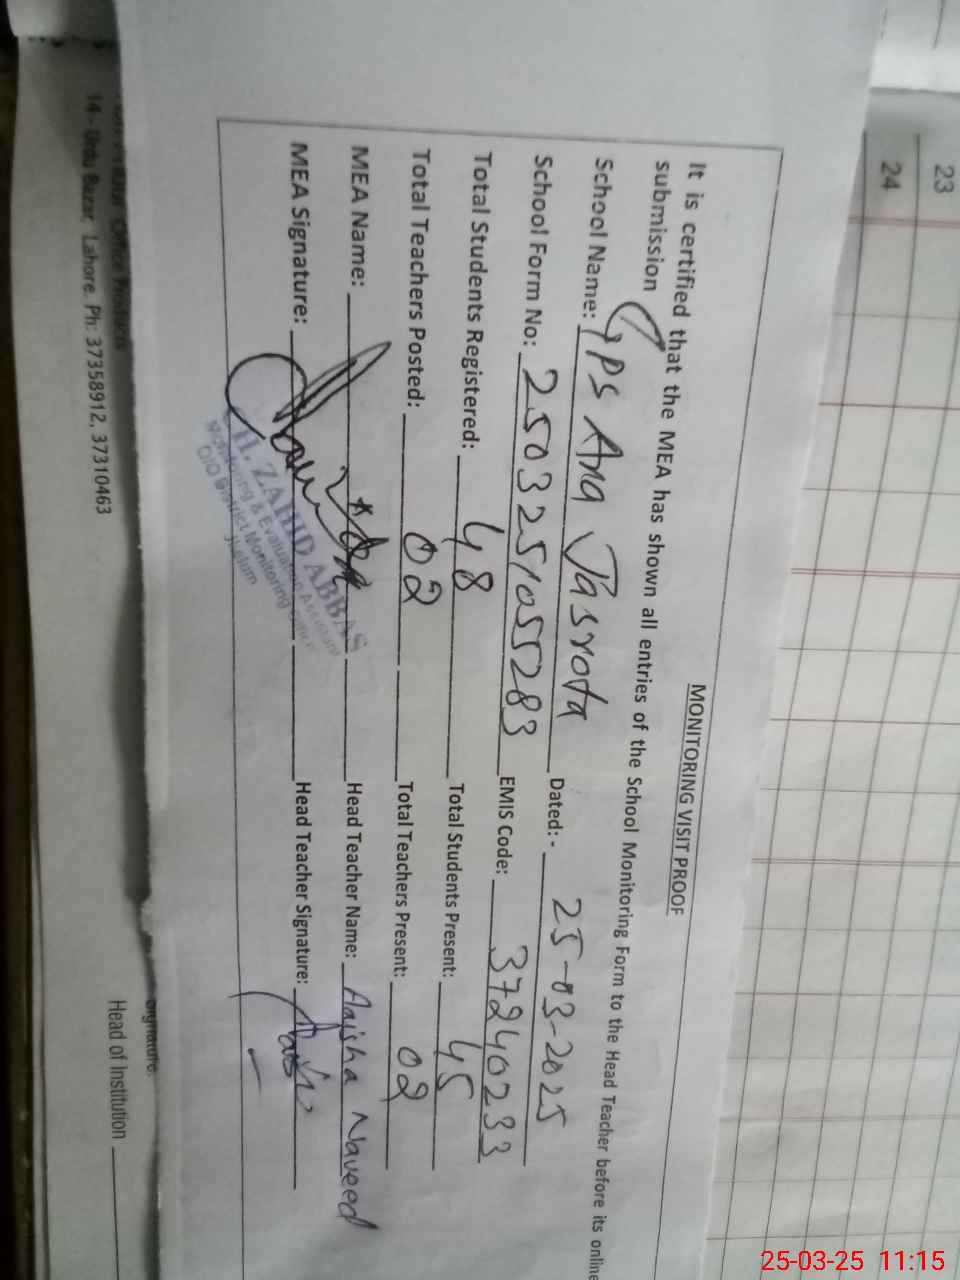 23
24
MONITORING VISIT PROOF
It is certified that the MEA has shown all entries of the School Monitoring Form to the Head Teacher before its online
submission
School Name: GPS Ara Jasrota Dated:- 25-03-2025
School Form No: 2503251055283 EMIS Code: 37240233
Total Students Registered: 48 Total Students Present: 45
Total Teachers Posted: 02 Total Teachers Present: 02
MEA Name: Head Teacher Name: Aaisha Naveed
MEA Signature: Head Teacher Signature:
CH. ZAHID ABBAS
Monitoring & Evaluation Assistant
O/O District Monitoring Office
Jhelum
Office Products
14 - Urdu Bazar, Lahore. Ph: 37358912, 37310463
Signature:
Head of Institution
25-03-25 11:15